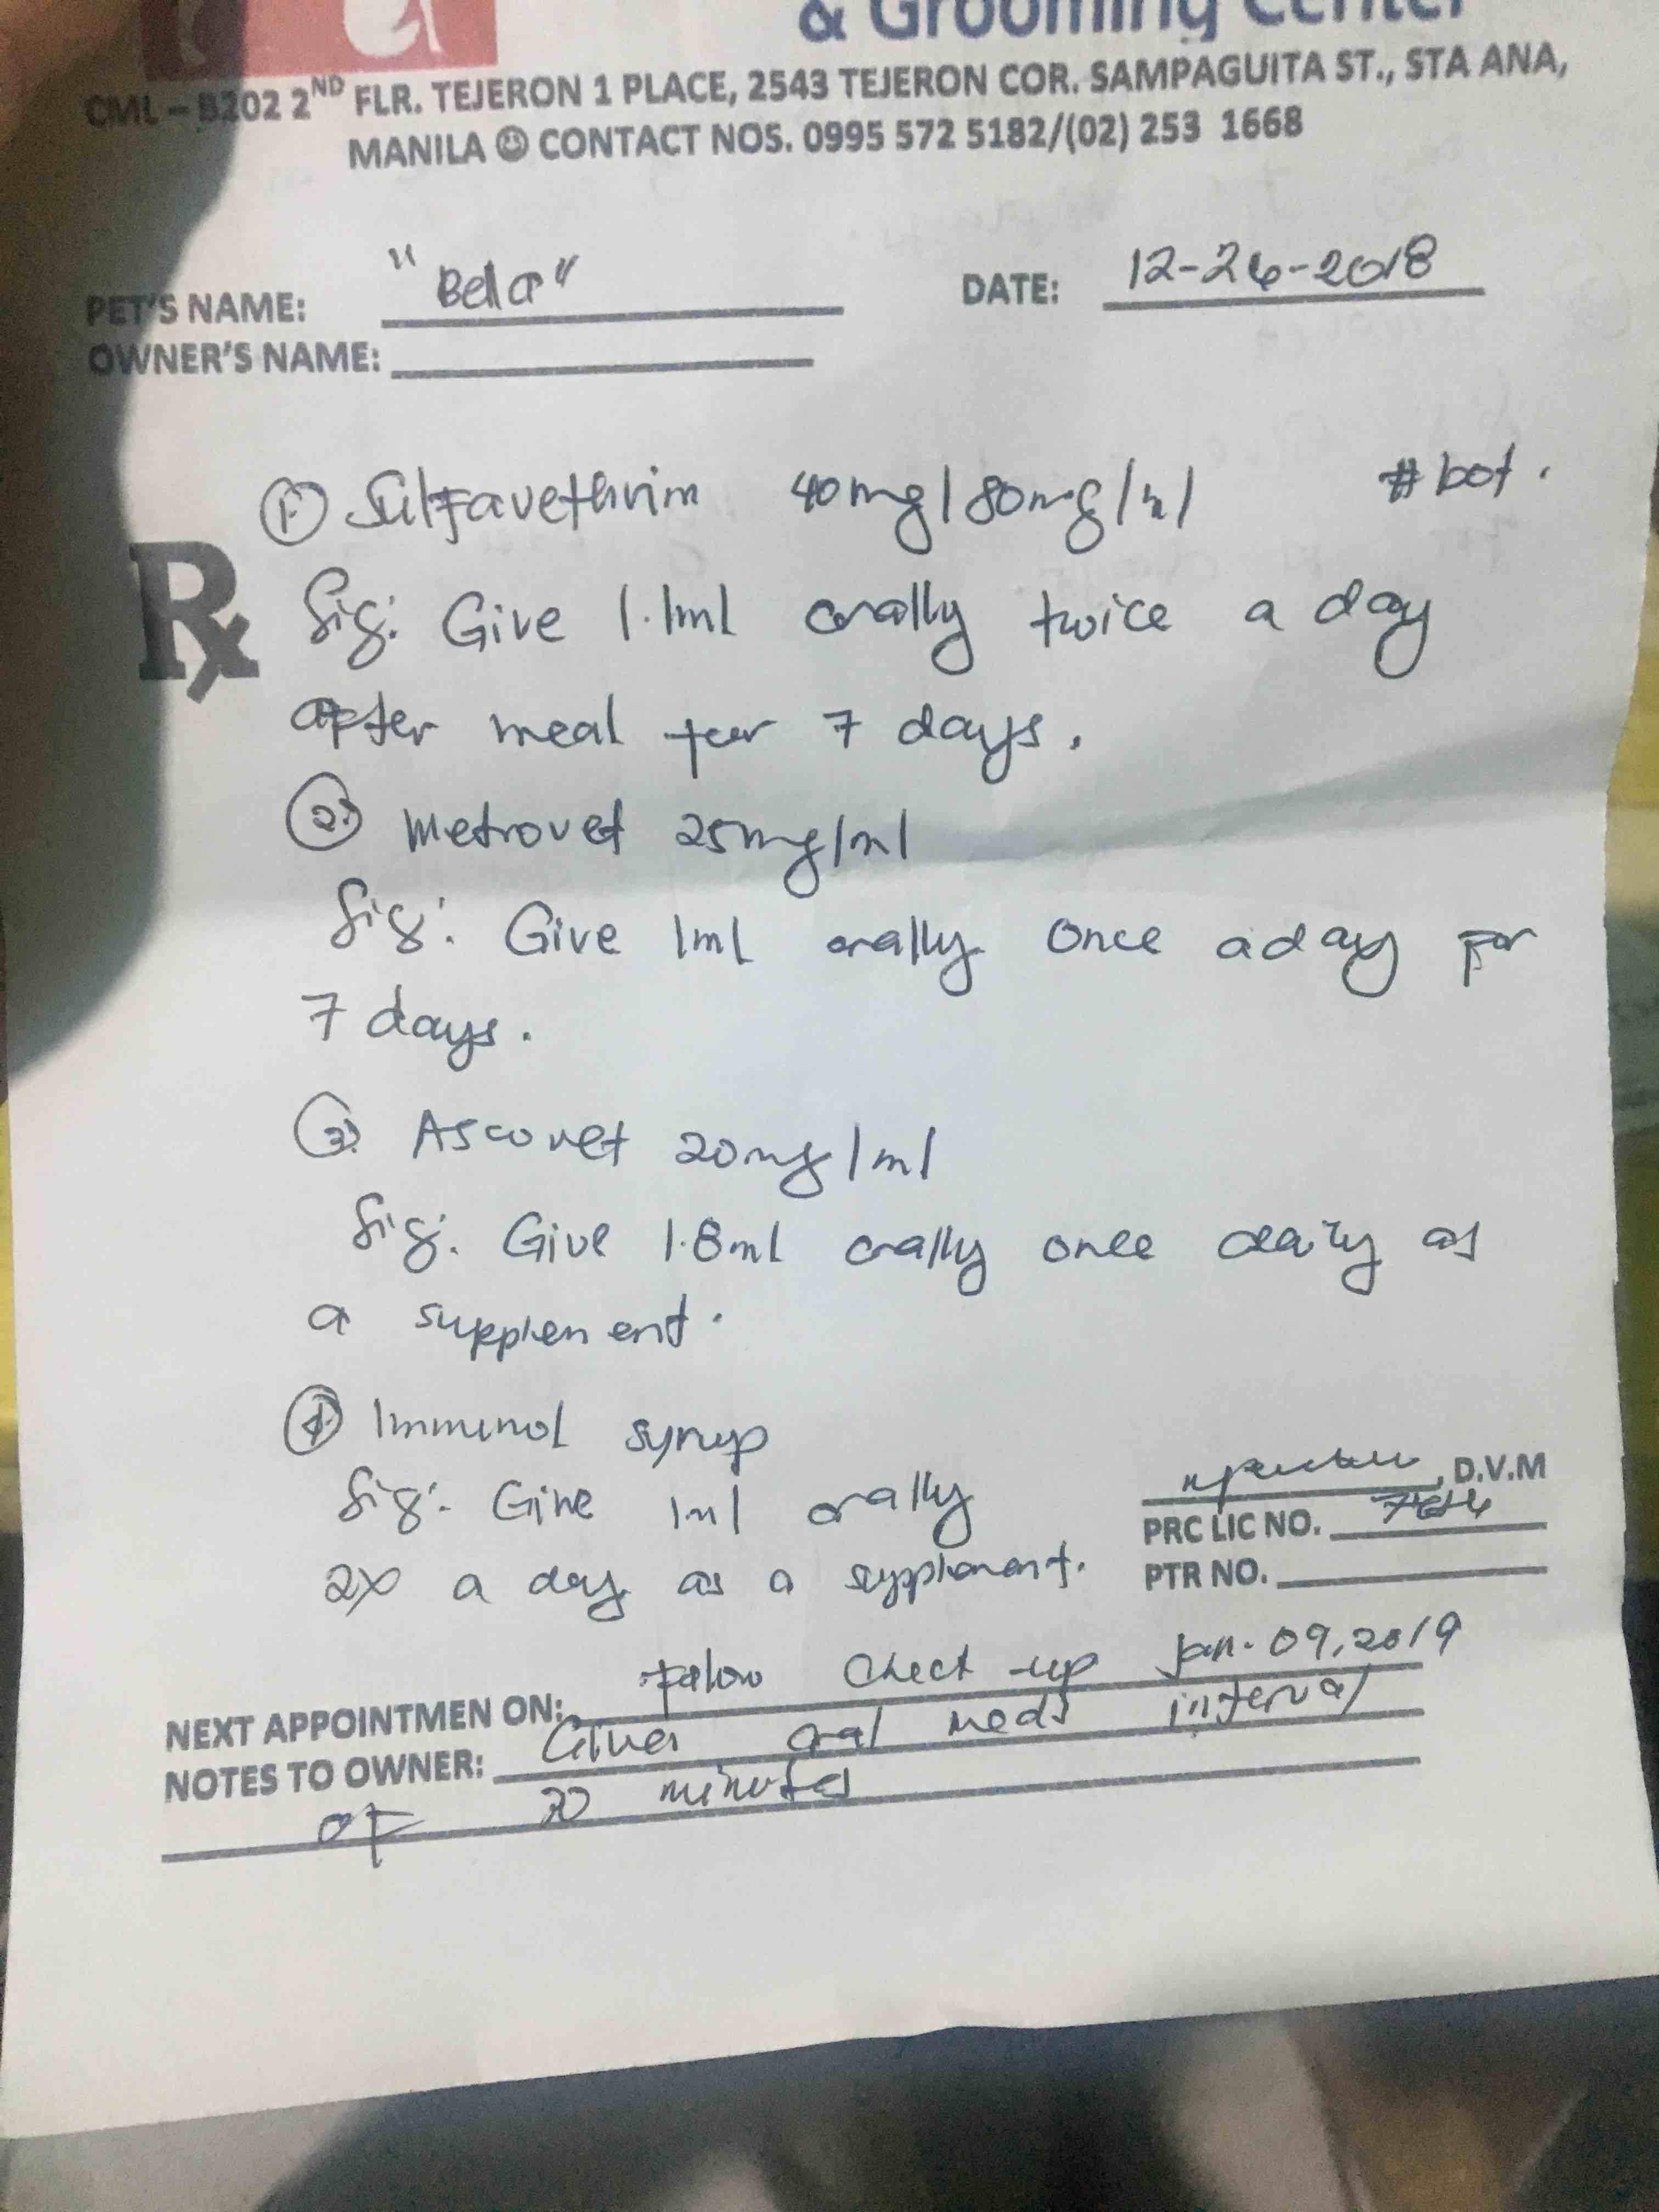 & Grooming Center
CML – B202 2ND FLR. TEJERON 1 PLACE, 2543 TEJERON COR. SAMPAGUITA ST., STA ANA,
MANILA ☺ CONTACT NOS. 0995 572 5182/(02) 253 1668
PET'S NAME: "Bella" DATE: 12-26-2018
OWNER'S NAME:
① Sulfavethrim 40mg/80mg/ml #bot.
Rx
Sig: Give 1.1ml orally twice a day
after meal for 7 days.
② Metrovet 25mg/ml
Sig: Give 1ml orally once a day for
7 days.
③ Ascovet 20mg/ml
Sig: Give 1.8ml orally once daily as
a supplement.
④ Immunol syrup
Sig: Give 1ml orally
2x a day as a supplement.
, D.V.M
PRC LIC NO.
PTR NO.
NEXT APPOINTMEN ON: Follow check-up Jan. 09, 2019
NOTES TO OWNER: oral meds interval
of minutes